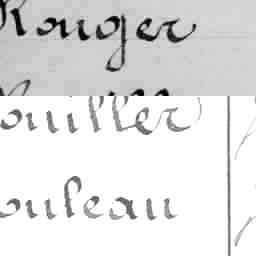 Rouger
ouiller
ouleau